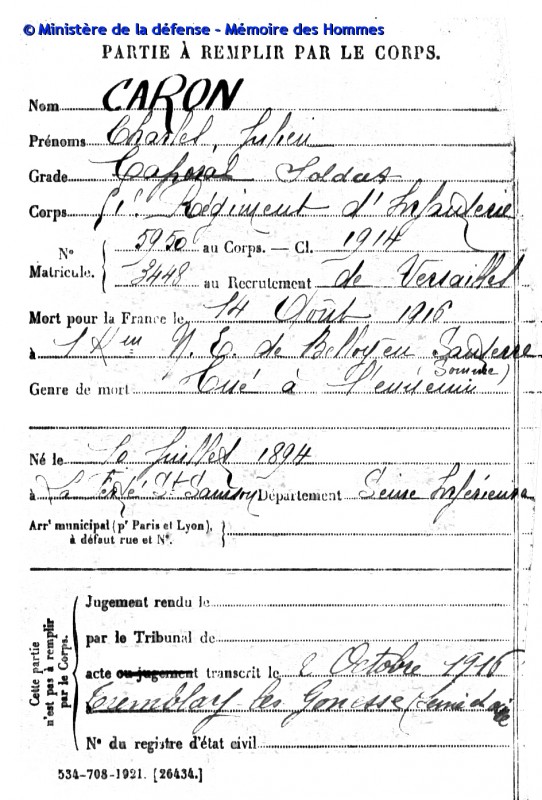 © Ministère de la défense - Mémoire des Hommes
PARTIE À REMPLIR PAR LE CORPS.
Nom CARON
Prénoms Charles Julien
Grade Caporal Soldat
Corps 51e Régiment d'Infanterie
N° Matricule. { 5950 au Corps. — Cl. 1914
3448 au Recrutement de Versailles
Mort pour la France le 14 Août 1916
à 1 Km N. E. de Belloy en Santerre
(Somme)
Genre de mort Tué à l'ennemi
Né le 10 Juillet 1894
à La Ferté St Samson Département Seine Inférieure
Arrt municipal (pr Paris et Lyon), à défaut rue et N°. }
Cette partie n'est pas à remplir par le Corps.
Jugement rendu le
par le Tribunal de
acte ou jugement transcrit le 2 Octobre 1916
à Tremblay les Gonesse (Seine et Oise
N° du registre d'état civil
534-708-1921. [26434.]